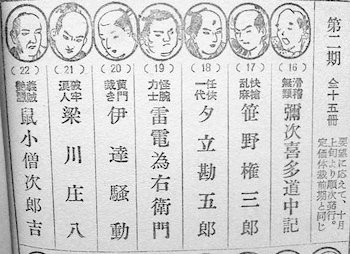 第二期 全十五冊
要望に応えて、十月
上旬より順次発行。
定価体裁前期と同じ
(16)
滑稽無類 彌次喜多道中記
(17)
快槍乱麻 笹野権三郎
(18)
任侠一代 夕立勘五郎
(19)
怪腕力士 雷電為右衛門
(20)
黄門裁き 伊達騒動
(21)
破牢浪人 梁川庄八
(22)
義賊 鼠小僧次郎吉